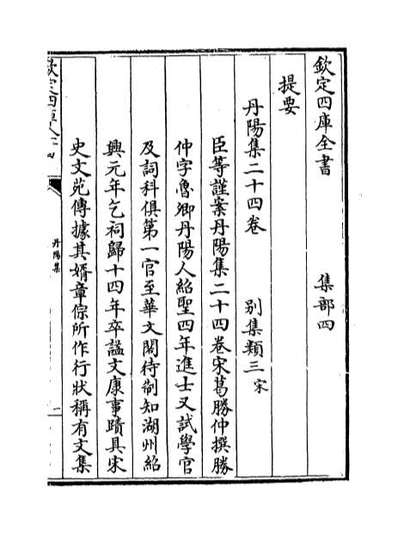 欽定四庫全書　集部四
提要
丹陽集二十四卷　别集類三宋
臣等謹案丹陽集二十四卷宋葛勝仲撰勝
仲字魯卿丹陽人紹聖四年進士又試學官
及詞科俱第一官至華文閣待制知湖州紹
興元年乞祠歸十四年卒諡文康事蹟具宋
史文苑傳據其婿章倧所作行狀稱有文集
丹陽集